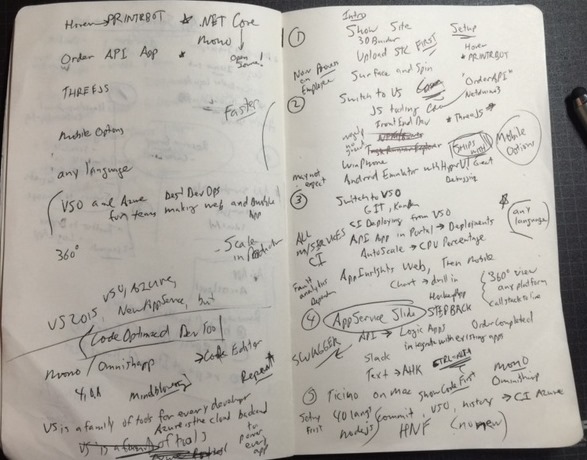 Hover → PRINTRBOT * .NET Core
mono
Open Source!
Order API App *
THREEJS
Faster
Mobile Options
any language
VSO and Azure Best DevOps
for teams making web and mobile App
360°
- Scale in Production
VS2015, VSO, AZURE,
New AppService, but
Code Optimized Dev Tool
mono / Omnisharp → Code Editor
Mindblowing Repeat
VS is a family of tools for every developer
Azure is the cloud backend
to power every app
VS is a family of tools
Intro
① Show Site Setup
3D Builder Hover
Upload STL FIRST * PRINTRBOT
Surface and Spin
Now
Employee
② Switch to VS
JS tooling "Order API"
Front End Dev * ThreeJS
WinPhone SHIPS WITH Mobile Options
may not expect Android Emulator with HyperV
Debugging
③ Switch to VSO
GIT, Kanban
ALL CI Deploying from VSO any language
MSERVICES API App in Portal → Deployments
CI AutoScale → CPU Percentage
AppInsights Web, Then Mobile
Fault analytics Chart → drill in 360° view
HockeyApp any platform
④ AppService Slide STEP BACK
API → Logic Apps Order Completed
SWAGGER integrate with existing apps
Slack
Text → AHK CTRL-ALT-A
⑤ Ticino on mac show Code First mono
Omnisharp
Setup First 40 langs commit, VSO, history → CI Azure
nodejs HNF (no new)